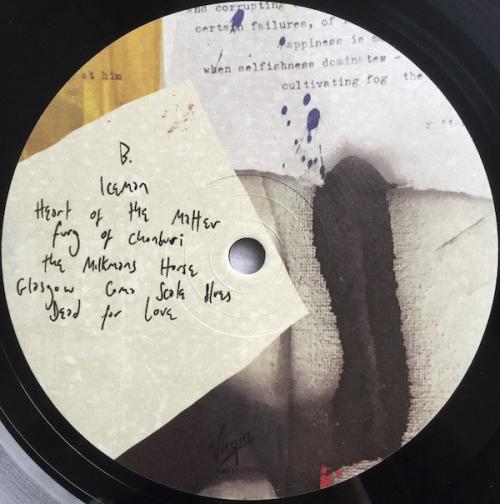 and corrupting
certain failures, of
happiness is
when selfishness dominates -
cultivating fog the
at him
B.
Iceman
Heart of the Matter
Fury of Chonburi
the Milkmans Horse
Glasgow Coma Scale Blues
Dead for Love
Virgin